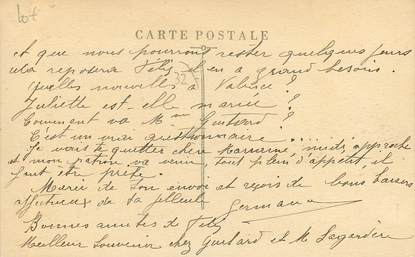 Lot
CARTE POSTALE
et que nous pourrons rester quelques jours
cela reposera Féli, il en a grand besoin.
32
Quelles nouvelles à Valence?
Juliette est-elle mariée?
Comment va Mme Guitard?
C'est un vrai questionnaire....
Je vais te quitter chère Marraine, midi approche
et mon patron va venir, tout plein d'appétit, il
faut être prête.
Merci de ton envoi et reçois de bons baisers
affectueux de ta filleule
Germaine
Bonnes amitiés de Féli
Meilleur souvenir chez Guitard et M